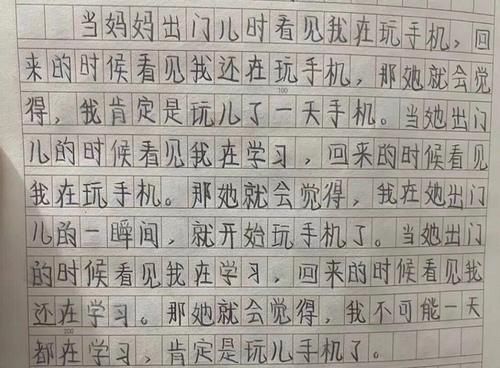 当妈妈出门儿时看见我在玩手机，回
来的时候看见我还在玩手机，那她就会觉
100
得，我肯定是玩儿了一天手机。当她出门
儿的时候看见我在学习，回来的时候看见
我在玩手机。那她就会觉得，我在她出门
儿的一瞬间，就开始玩手机了。当她出门
的时候看见我在学习，回来的时候看见我
还在学习。那她就会觉得，我不可能一天
200
都在学习，肯定是玩儿手机了。